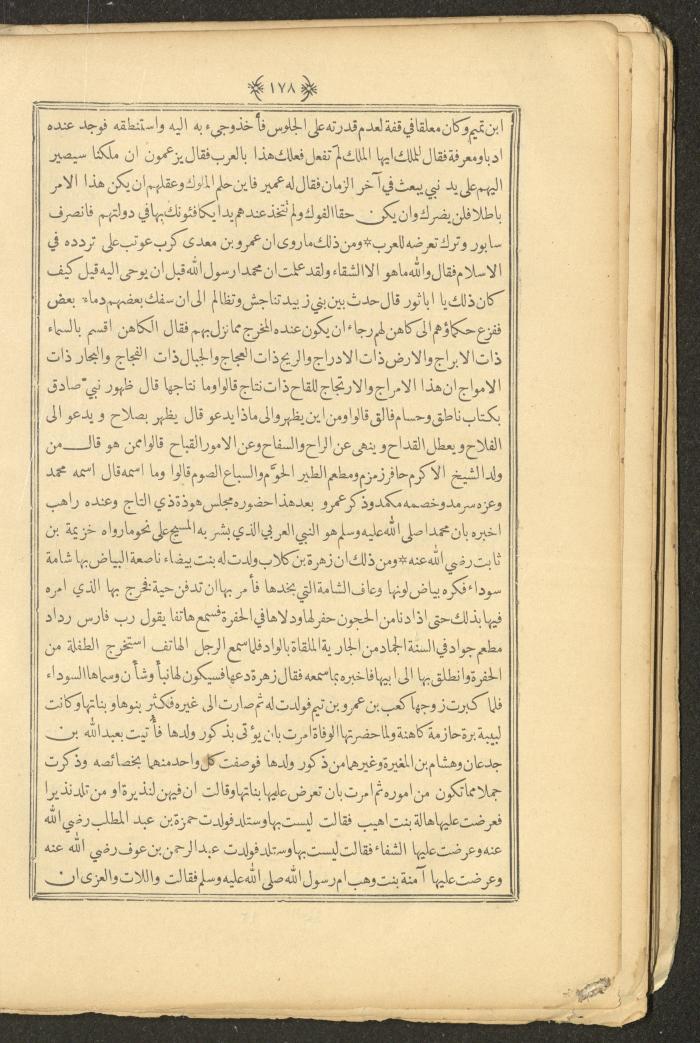 ١٧٨
ابن تميم وكان معلقا في قفة لعدم قدرته على الجلوس فأخذ وجيء به اليه واستنطقه فوجد عنده
ادبا ومعرفة فقال للملك ايها الملك لم تفعل فعلك هذا بالعرب فقال يزعمون ان ملكنا سيصير
اليهم على يد نبي يبعث في آخر الزمان فقال له عمير فاين حلم الملوك وعقلهم ان يكن هذا الامر
باطلا فلن يضرك وان يكن حقا الفوك ولم تتخذ عندهم يدا يكافئونك بها في دولتهم فانصرف
سابور وترك تعرضه للعرب * ومن ذلك ما روى ان عمرو بن معدى كرب عوتب على تردده في
الاسلام فقال والله ما هو الا الشقاء ولقد علمت ان محمدا رسول الله قبل ان يوحى اليه قيل كيف
كان ذلك يا ابا ثور قال حدث بين بني زبيد تناجش وتظالم الى ان سفك بعضهم دماء بعض
ففزع حكماؤهم الى كاهن لهم رجاء ان يكون عنده المخرج مما نزل بهم فقال الكاهن اقسم بالسماء
ذات الابراج والارض ذات الادراج والريح ذات العجاج والجبال ذات الفجاج والبحار ذات
الامواج ان هذا الامراج والارتجاج للقاح ذات نتاج قالوا وما نتاجها قال ظهور نبي صادق
بكتاب ناطق وحسام فالق قالوا ومن اين يظهر والى ماذا يدعو قال يظهر بصلاح و يدعو الى
الفلاح ويعطل القداح و ينهى عن الراح والسفاح وعن الامور القباح قالوا ممن هو قال من
ولد الشيخ الاكرم حافر زمزم ومطعم الطير الحوّم والسباع الصوم قالوا وما اسمه قال اسمه محمد
وعزه سرمد وخصمه مكمد وذكر عمرو بعد هذا حضوره مجلس هوذة ذي التاج وعنده راهب
اخبره بان محمدا صلى الله عليه وسلم هو النبي العربي الذي بشر به المسيح على نحو ما رواه خزيمة بن
ثابت رضي الله عنه * ومن ذلك ان زهرة بن كلاب ولدت له بنت بيضاء ناصعة البياض بها شامة
سوداء فكره بياض لونها وعاف الشامة التي بخدها فأمر بها ان تدفن حية فخرج بها الذي امره
فيها بذلك حتى اذا دنا من الحجون حفر لها ودلاها في الحفرة فسمع هاتفا يقول رب فارس رداد
مطعم جواد في السنة الجماد من الجارية الملقاة بالواد فلما سمع الرجل الهاتف استخرج الطفلة من
الحفرة وانطلق بها الى ابيها فاخبره بما سمعه فقال زهرة دعها فسيكون لها نبأ وشأن وسماها السوداء
فلما كبرت زوجها كعب بن عمرو بن تيم فولدت له ثم صارت الى غيره فكثر بنوها و بناتها وكانت
لبيبة برة حازمة كاهنة ولما حضرتها الوفاة امرت بان يؤتى بذكور ولدها فأُتيت بعبد الله بن
جدعان وهشام بن المغيرة وغيرهما من ذكور ولدها فوصفت كل واحد منهما بخصائصه وذكرت
جملا مما تكون من اموره ثم امرت بان تعرض عليها بناتها وقالت ان فيهن لنذيرة او من تلد نذيرا
فعرضت عليها هالة بنت اهيب فقالت ليست بها وستلد فولدت حمزة بن عبد المطلب رضي الله
عنه وعرضت عليها الشفاء فقالت ليست بها وستلد فولدت عبد الرحمن بن عوف رضي الله عنه
وعرضت عليها آمنة بنت وهب ام رسول الله صلى الله عليه وسلم فقالت واللات والعزى ان